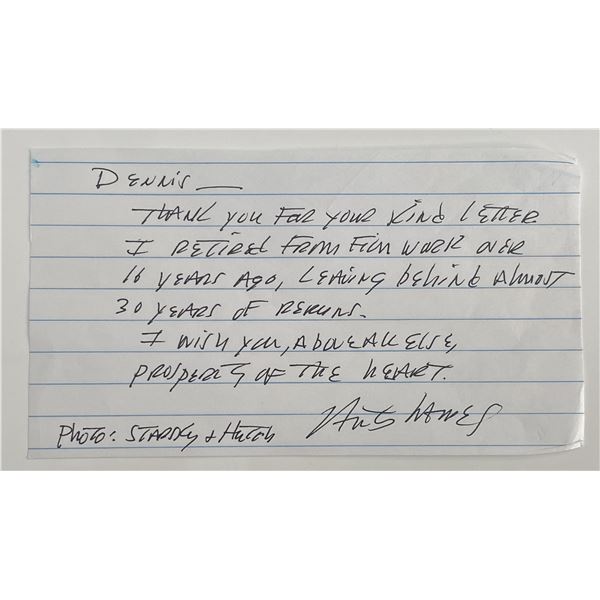 Dennis —
Thank you for your kind letter
I retired from film work over
16 years ago, leaving behind almost
30 years of reruns.
I wish you, above all else,
prosperity of the heart.
Photo: Starsky & Hutch